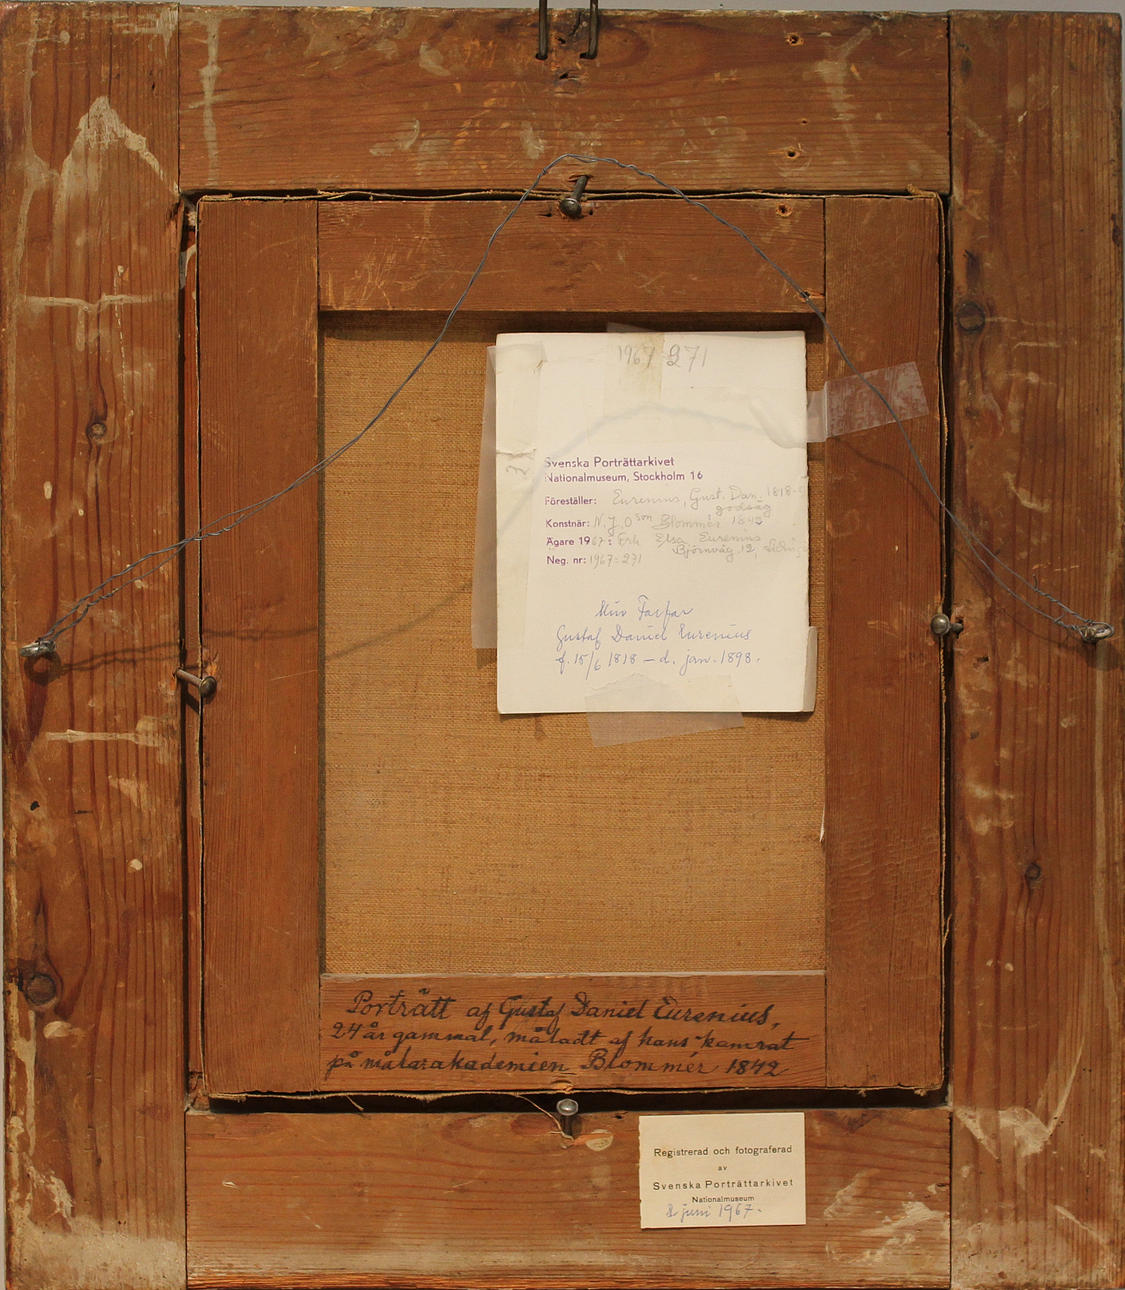 1967 271
Svenska Porträttarkivet
Nationalmuseum, Stockholm 16
Föreställer: Eurenius, Gust. Dan. 1818-
godsäg
Konstnär: N. J. O:son Blommér 1842
Ägare 1967: Elsa Eurenius
Björnväg. 12,
Neg. nr: 1967:271
Min Farfar
Gustaf Daniel Eurenius
f. 15/6 1818 – d. jan. 1898.
Porträtt af Gustaf Daniel Eurenius,
24 år gammal, måladt af hans kamrat
på målarakademien Blommér 1842
Registrerad och fotograferad
av
Svenska Porträttarkivet
Nationalmuseum
juni 1967.